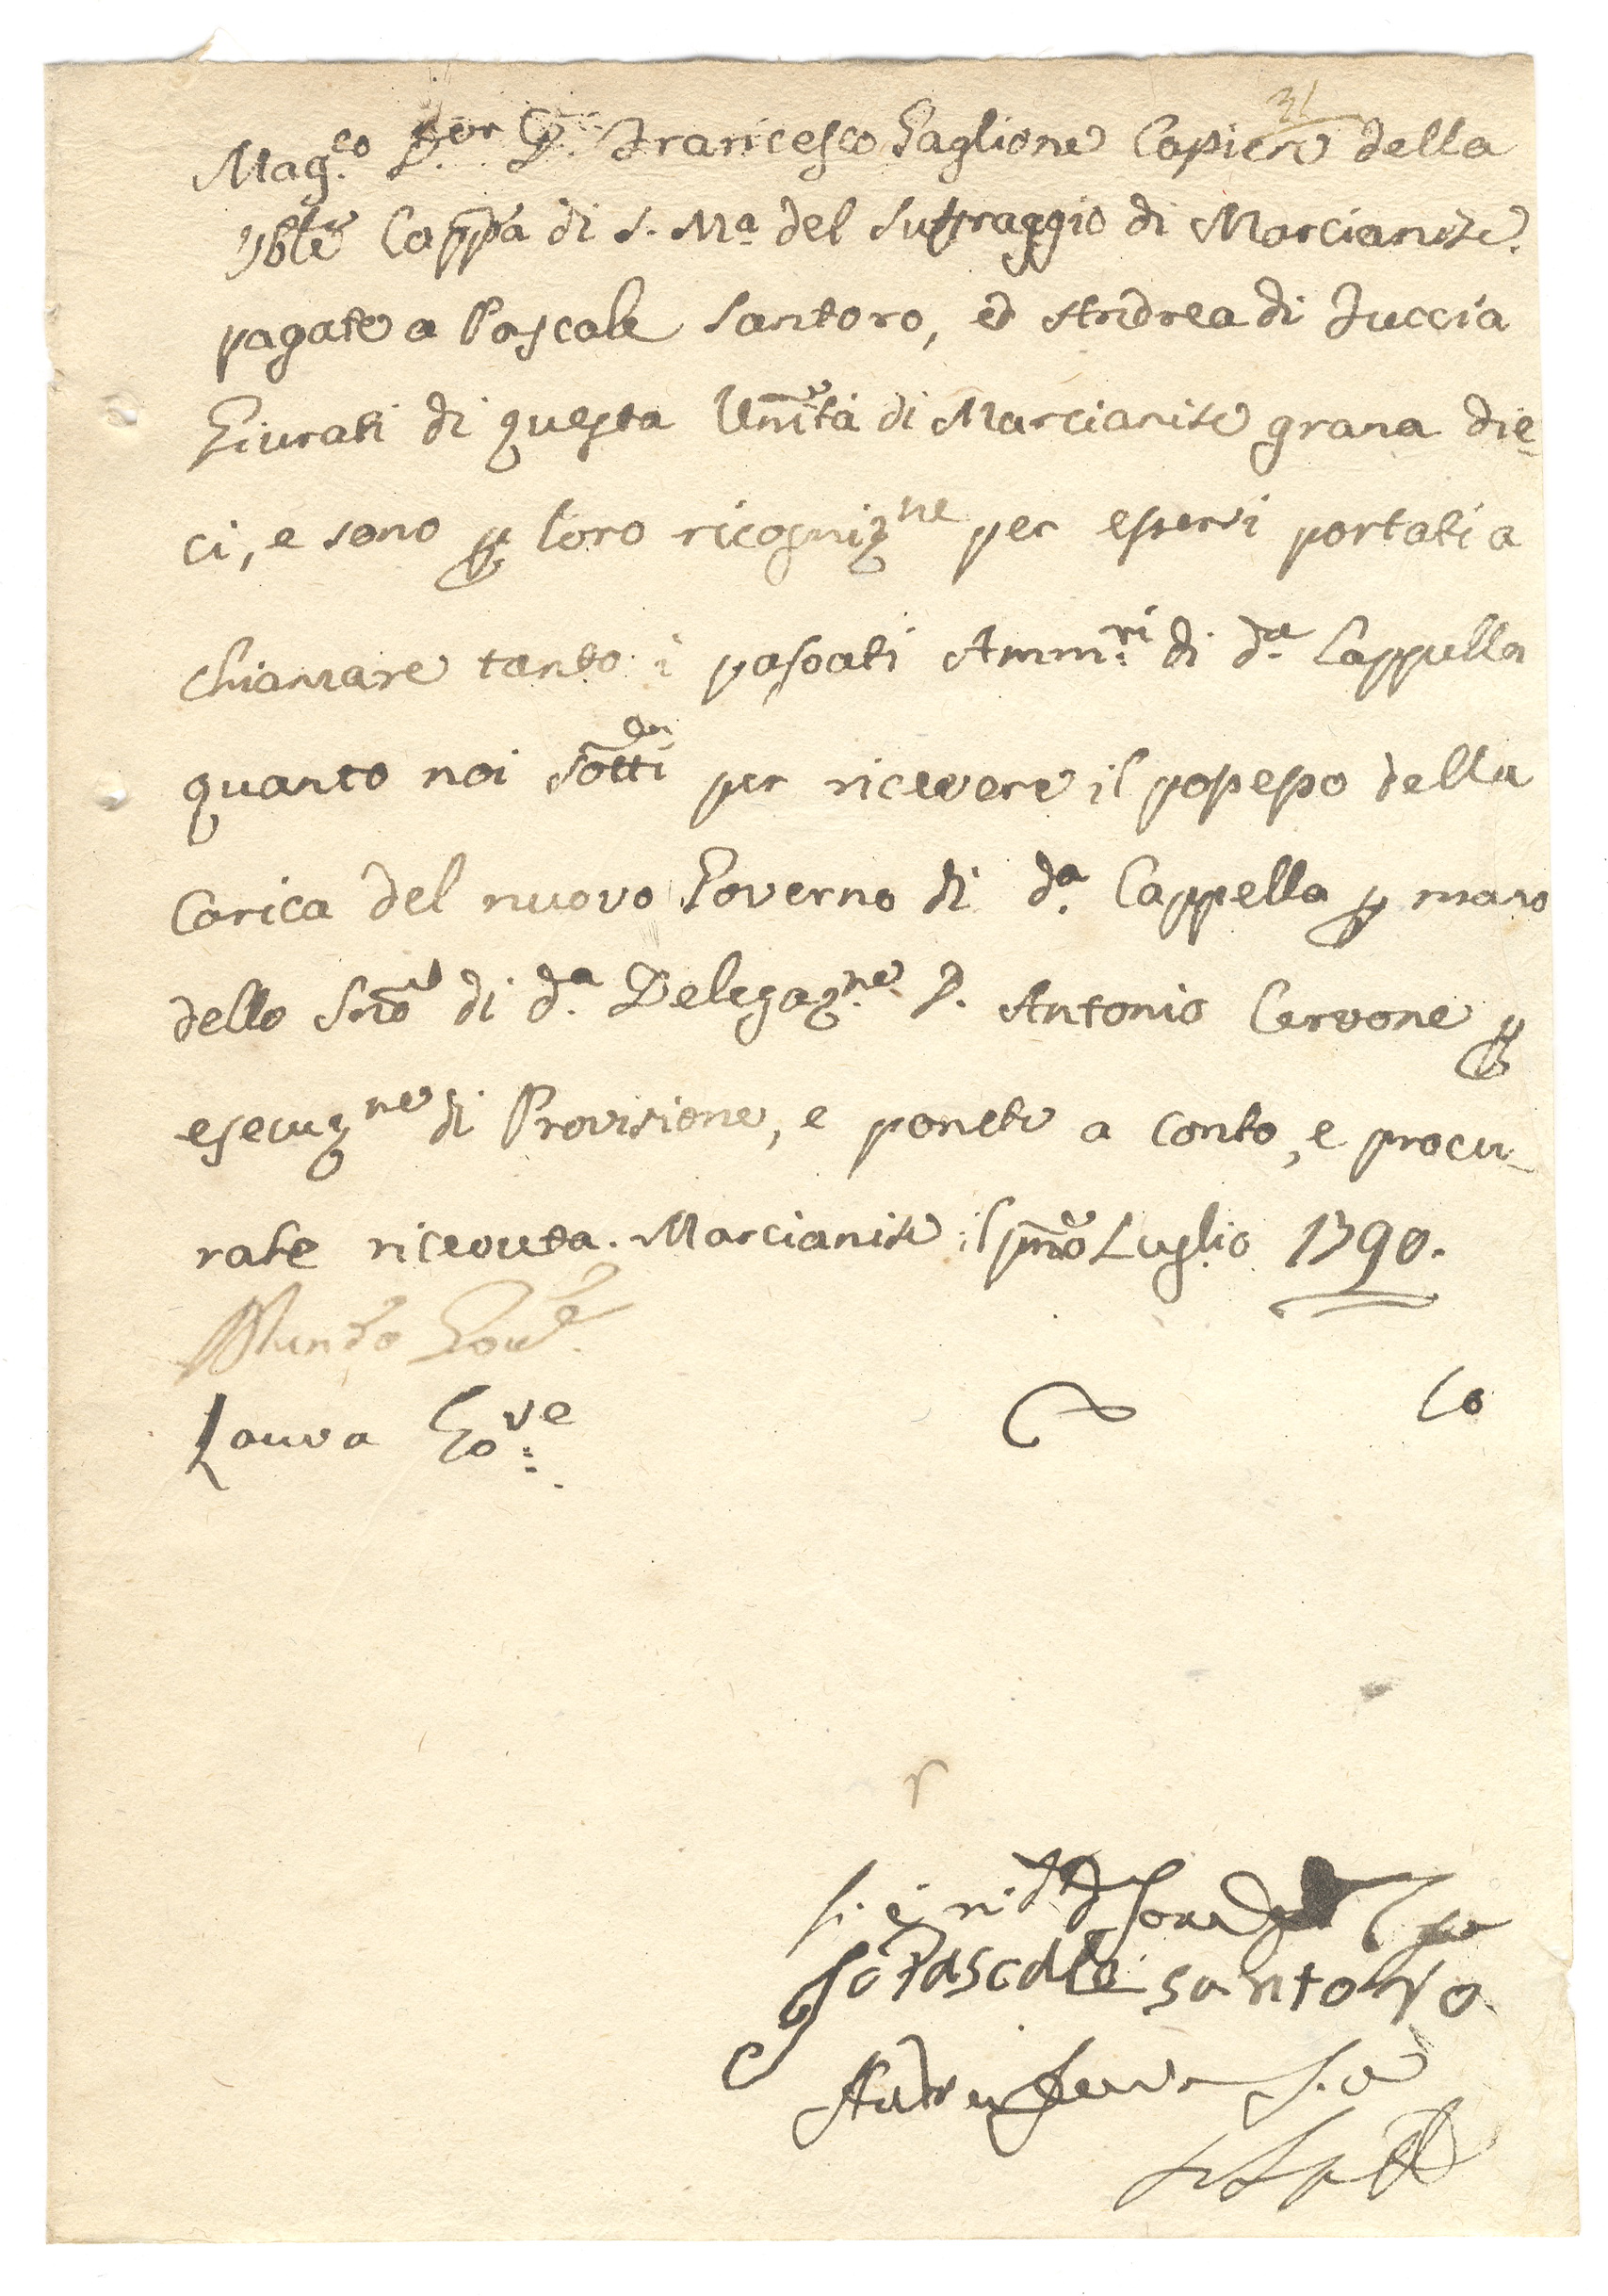 31
Mag.co D.or D. Francesco Paglione Capiere della
Cappa di S. Ma del Suffraggio di Marcianise.
pagate a Pascale Santoro, ed Andrea di Iuccia
Giurati di questa Unità di Marcianise grana die-
ci, e sono p loro ricogniz.ne per essersi portati a
chiamare tanto i passati Amm.ri di d.a Cappella
quanto noi sotti per ricevere il possesso della
Carica del nuovo Governo di d.a Cappella p mano
dello di d.a Delegaz.ne D. Antonio Cervone p
esecuz.ne di Provisione, e ponete a conto, e procu-
rate ricevuta. Marcianise il pmo Luglio 1790.
Mundo Gov.e
Laura Gov.e
Io Pascale santoro